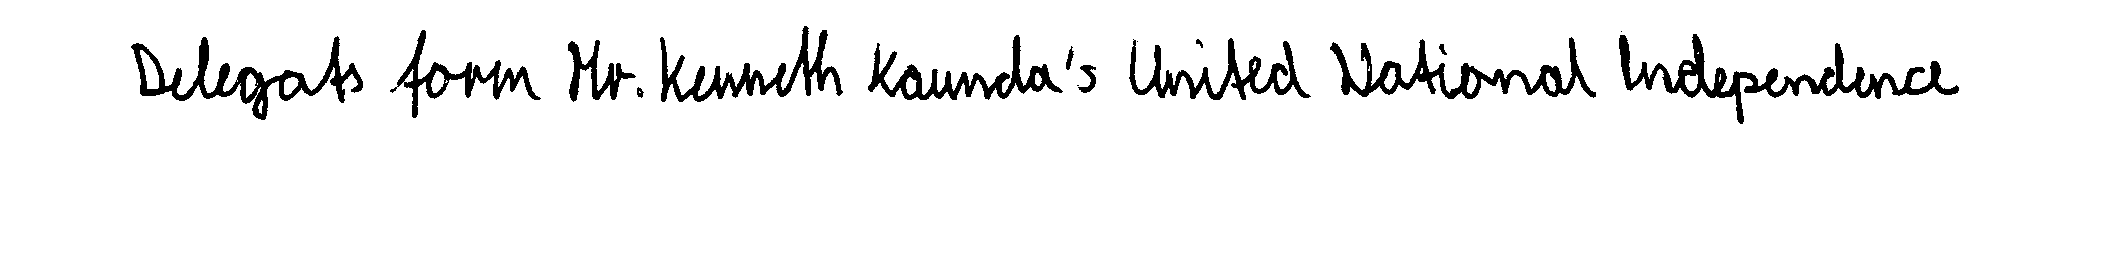 Delegats form Mr. Kenneth Kaunda's United National Independence